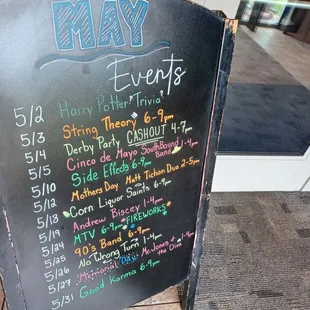 MAY
Events
5/2 Harry Potter Trivia
5/3 String Theory 6-9pm
5/4 Derby Party CASHOUT 4-7pm
5/5 Cinco de Mayo SouthBound Band
5/10 Side Effects 6-9pm
5/12 Mothers Day Matt Tichon Duo 2-5pm
5/17 Corn Liquor Saints 6-9pm
5/18 Andrew Biscey 1-4pm
5/19 MTV 6-9pm FIREWORKS
5/24 90's Band 6-9pm
5/25 No Wrong Turn 1-4pm
5/26 Memorial Day
5/27 Mr. Jones of the Diva 1-4pm
5/31 Good Karma 6-9pm